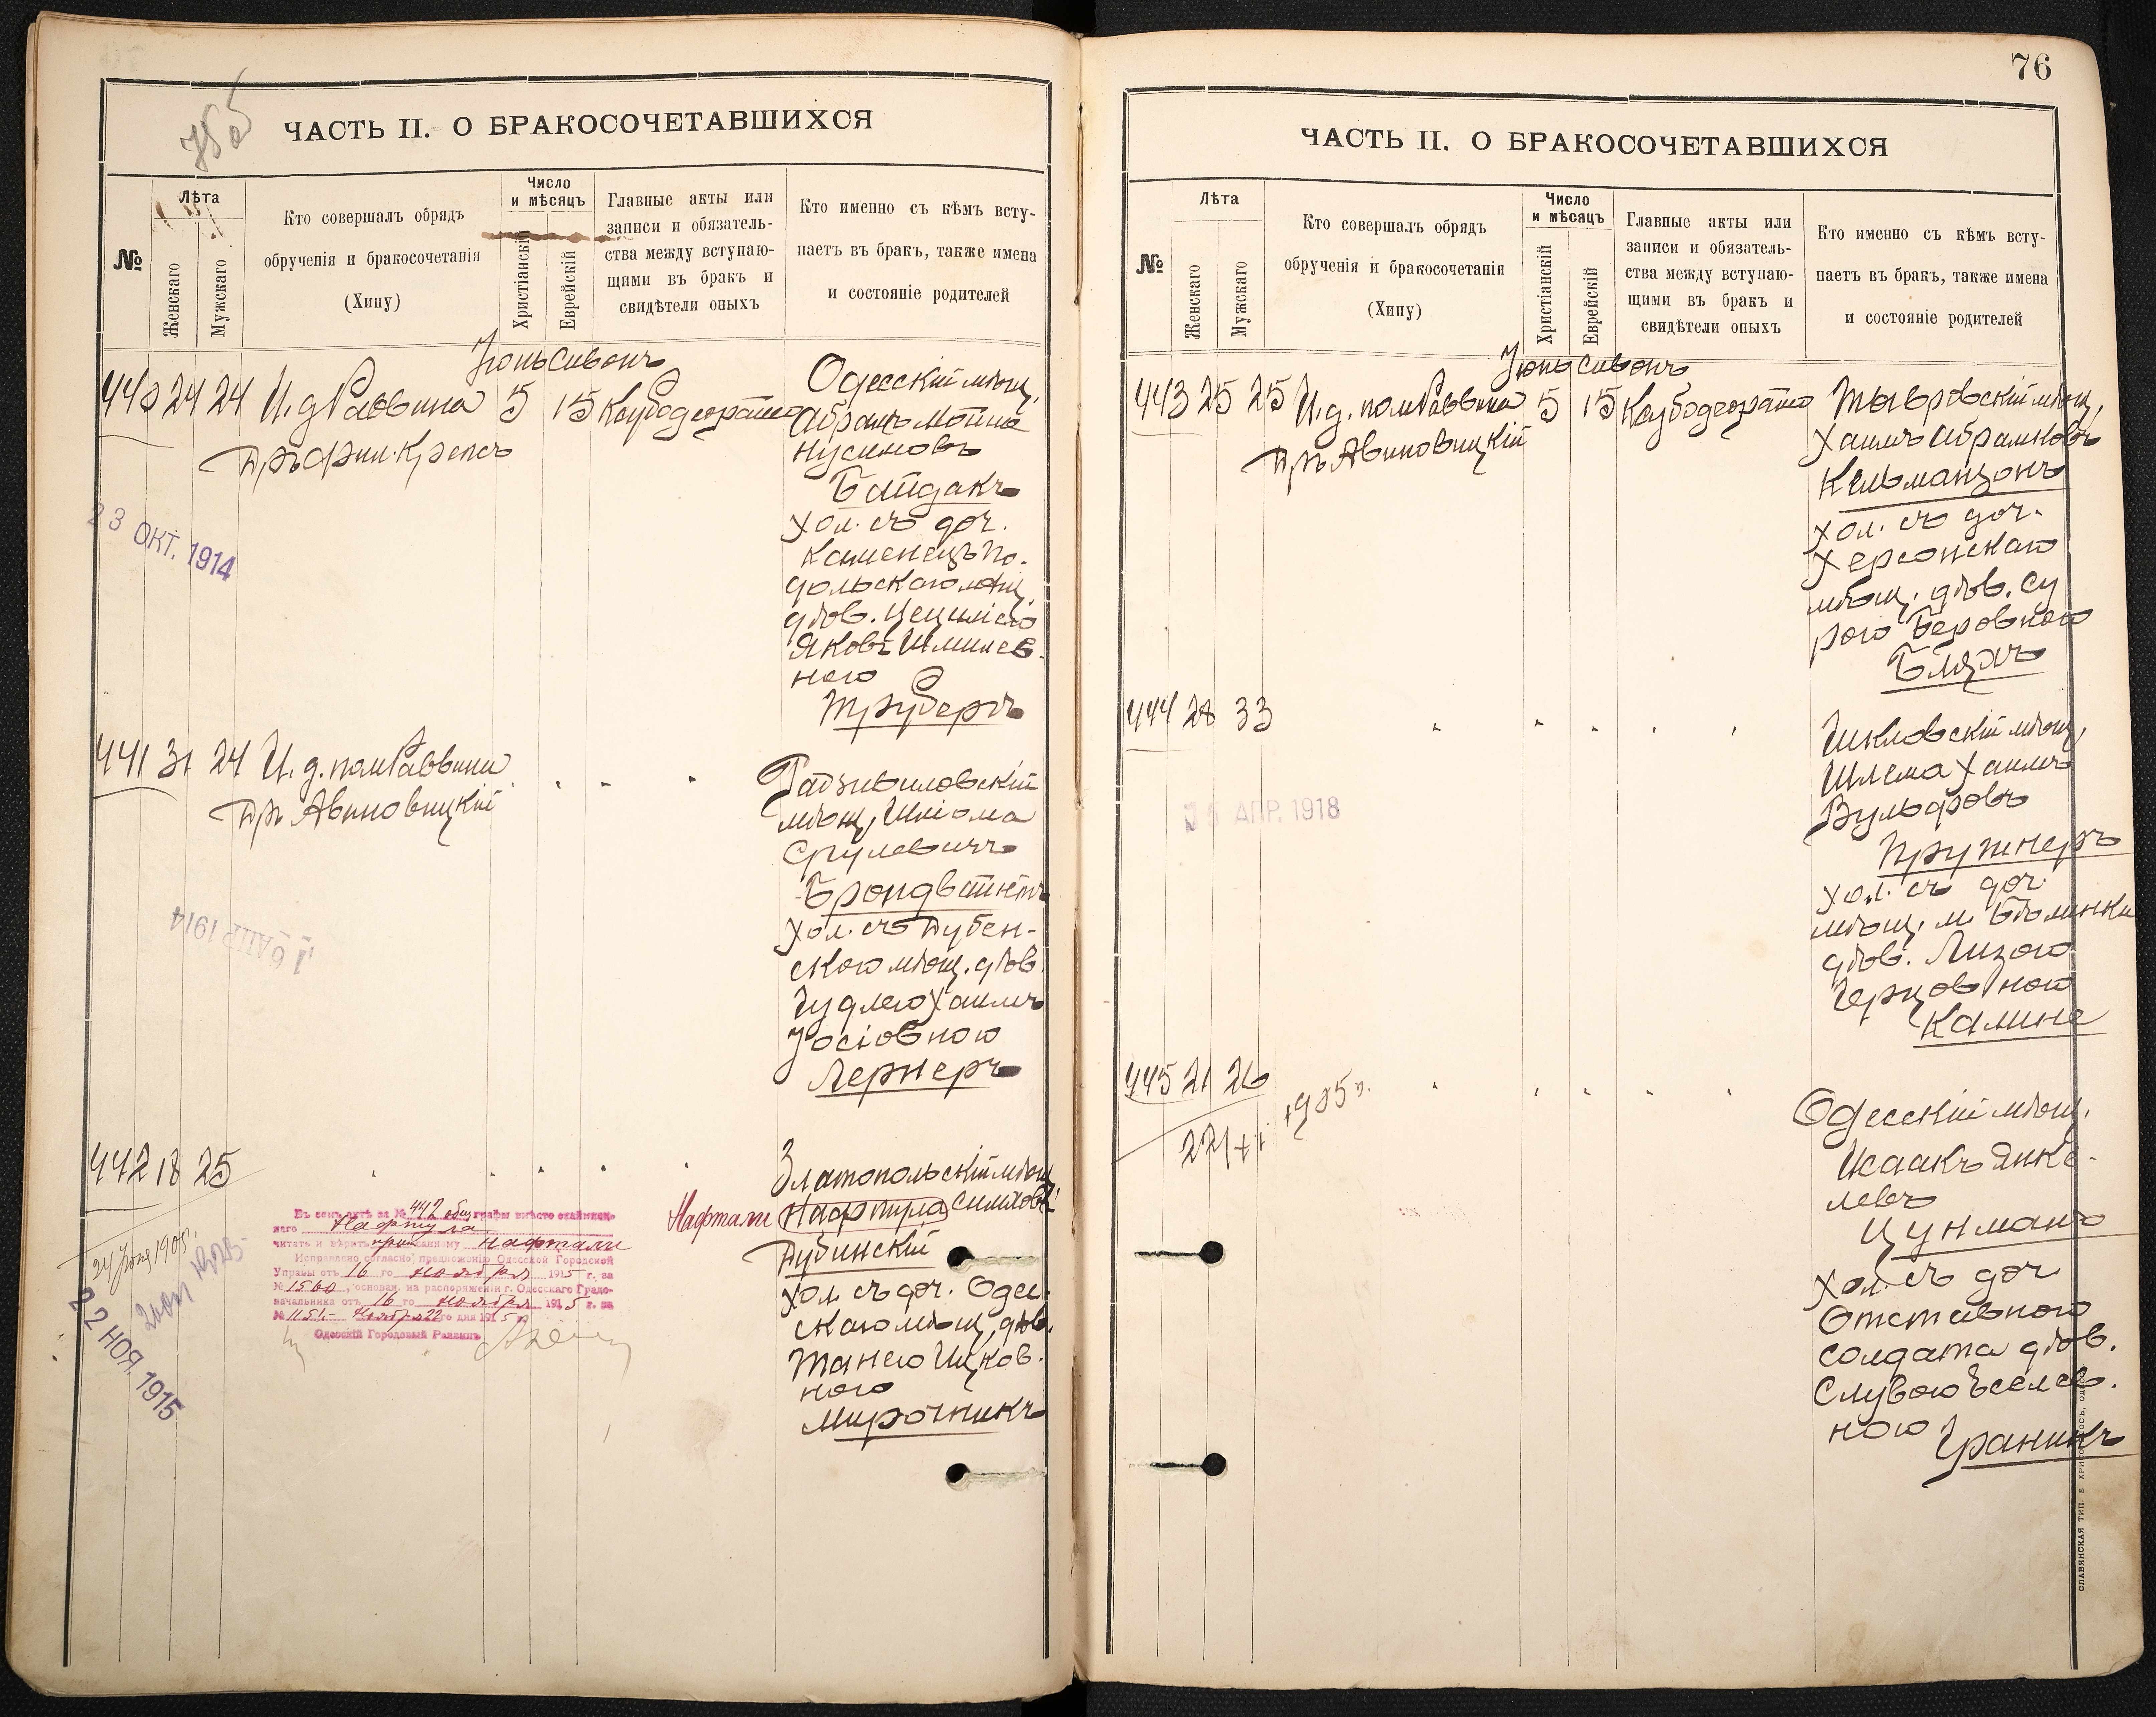 ЧАСТЬ II. О БРАКОСОЧЕТАВШИХСЯ
№
Лѣта
Женскаго
Мужскаго
Кто совершалъ обрядъ
обрученія и бракосочетанія
(Хипу)
Число
и мѣсяцъ
Христіанскій
Еврейскій
Главные акты или
записи и обязатель-
ства между вступаю-
щими въ бракъ и
свидѣтели оныхъ
Кто именно съ кѣмъ всту-
паетъ въ бракъ, также имена
и состояніе родителей
Іюнь Сивонъ
440 24 24 И. д. Раввина 5 15
Одесскій мѣщ.
Абрамъ Мойше
Нусиновъ
Байдакъ
хол. съ доч.
Каменецъ По-
дольскаго мѣщ.
дѣв. Цециліею
Яковъ Шмилев-
ною
Труберъ
23 ОКТ. 1914
441 31 24 И. д. пом. Раввина
Дръ Авиновицкій
Радзивиловскій
мѣщ. Шліома
Срулевичъ
Брондвайнъ
хол. съ Дубен-
скою мѣщ. дѣв.
Гудлею Хаимъ
Іосіовною
Лернеръ
16 АПР 1914
442 18 25
Златопольскій мѣщ.
Нафтали Нафтула Симховъ
Дубинскій
хол. съ доч. Одес-
скаго мѣщ. дѣв.
Танею Ицков-
ною
Мирочникъ
Въ семъ актѣ за № 442 общ графы вмѣсто
Нафтула
читать и вѣрить Нафтали
Исправлено согласно предложенію Одесской Городской
Управы отъ 16 го ноября 1915 г. за
№ 1560, основан. на распоряженіи г. Одесскаго Градо-
начальника отъ 16 го ноября 1915 г. за
№ 1151. Ноября 22 го дня 1915 г.
Одесскій Городовой Раввинъ
24 Іюня 1905.
22 НОЯ. 1915
76
ЧАСТЬ II. О БРАКОСОЧЕТАВШИХСЯ
№
Лѣта
Женскаго
Мужскаго
Кто совершалъ обрядъ
обрученія и бракосочетанія
(Хипу)
Число
и мѣсяцъ
Христіанскій
Еврейскій
Главные акты или
записи и обязатель-
ства между вступаю-
щими въ бракъ и
свидѣтели оныхъ
Кто именно съ кѣмъ всту-
паетъ въ бракъ, также имена
и состояніе родителей
Іюнь Сивонъ
443 25 25 И. д. пом. Раввина 5 15
Дръ Авиновицкій
мѣщ.
Хаимъ Абрамковъ
Кельманзонъ
хол. съ доч.
Херсонскаго
мѣщ. дѣв. Су
рою Беровною
Бляхъ
444 28 33
Шкловскій мѣщ.
Шлема Хаимъ
Вульфовъ
Пружнеръ
хол. съ доч
мѣщ. м.
дѣв. Лизою
Герцовною
Калине
15 АПР. 1918
445 21 26
1905 г.
Одесскій мѣщ.
Исаакъ Янке-
левъ
Цунманъ
хол. съ доч
Отставного
солдата дѣв.
Слувою
ною Граникъ